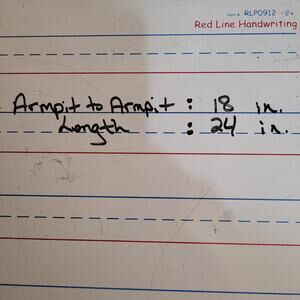 RLP0912
Red Line Handwriting
Armpit to Armpit : 18 in.
Length : 24 in.